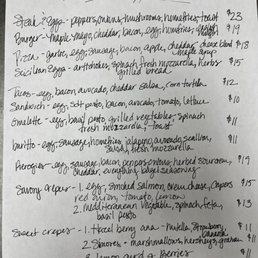 Steak & Eggs - peppers, onions, mushrooms, homefries, toast $23
Burger - maple mayo, cheddar, bacon, egg, homefries, $19
Pizza - garlic, egg, sausage, bacon, apple, cheddar, $18
maple syrup
Sicilian Eggs - artichokes, spinach, fresh mozzarella, herbs $15
grilled bread
Tacos - egg, bacon, avocado, cheddar, salsa, corn tortilla $12
Sandwich - egg, soft pesto, bacon, avocado, tomato, lettuce $10
Omelette - egg, basil pesto, grilled vegetables, spinach $11
fresh mozzarella, toast
burrito - egg, sausage, homefries, jalapeno, avocado, scallion, $11
salsa, fresh mozzarella
Pierogies - egg, sausage, bacon, peppers, onions, herbed sour cream, $19
cheddar, everything bagel seasoning
Savory crepes - 1. egg, smoked salmon, cream cheese, capers $15
red onion, tomato, lemon
2. Mediterranean vegetable, spinach, feta, $13
basil pesto
Sweet crepes - 1. Hazel berry ana - Nutella, Strawberry, $11
banana
2. S'mores - marshmallows, hersheys, graham $11
3. lemon curd & Berries $11